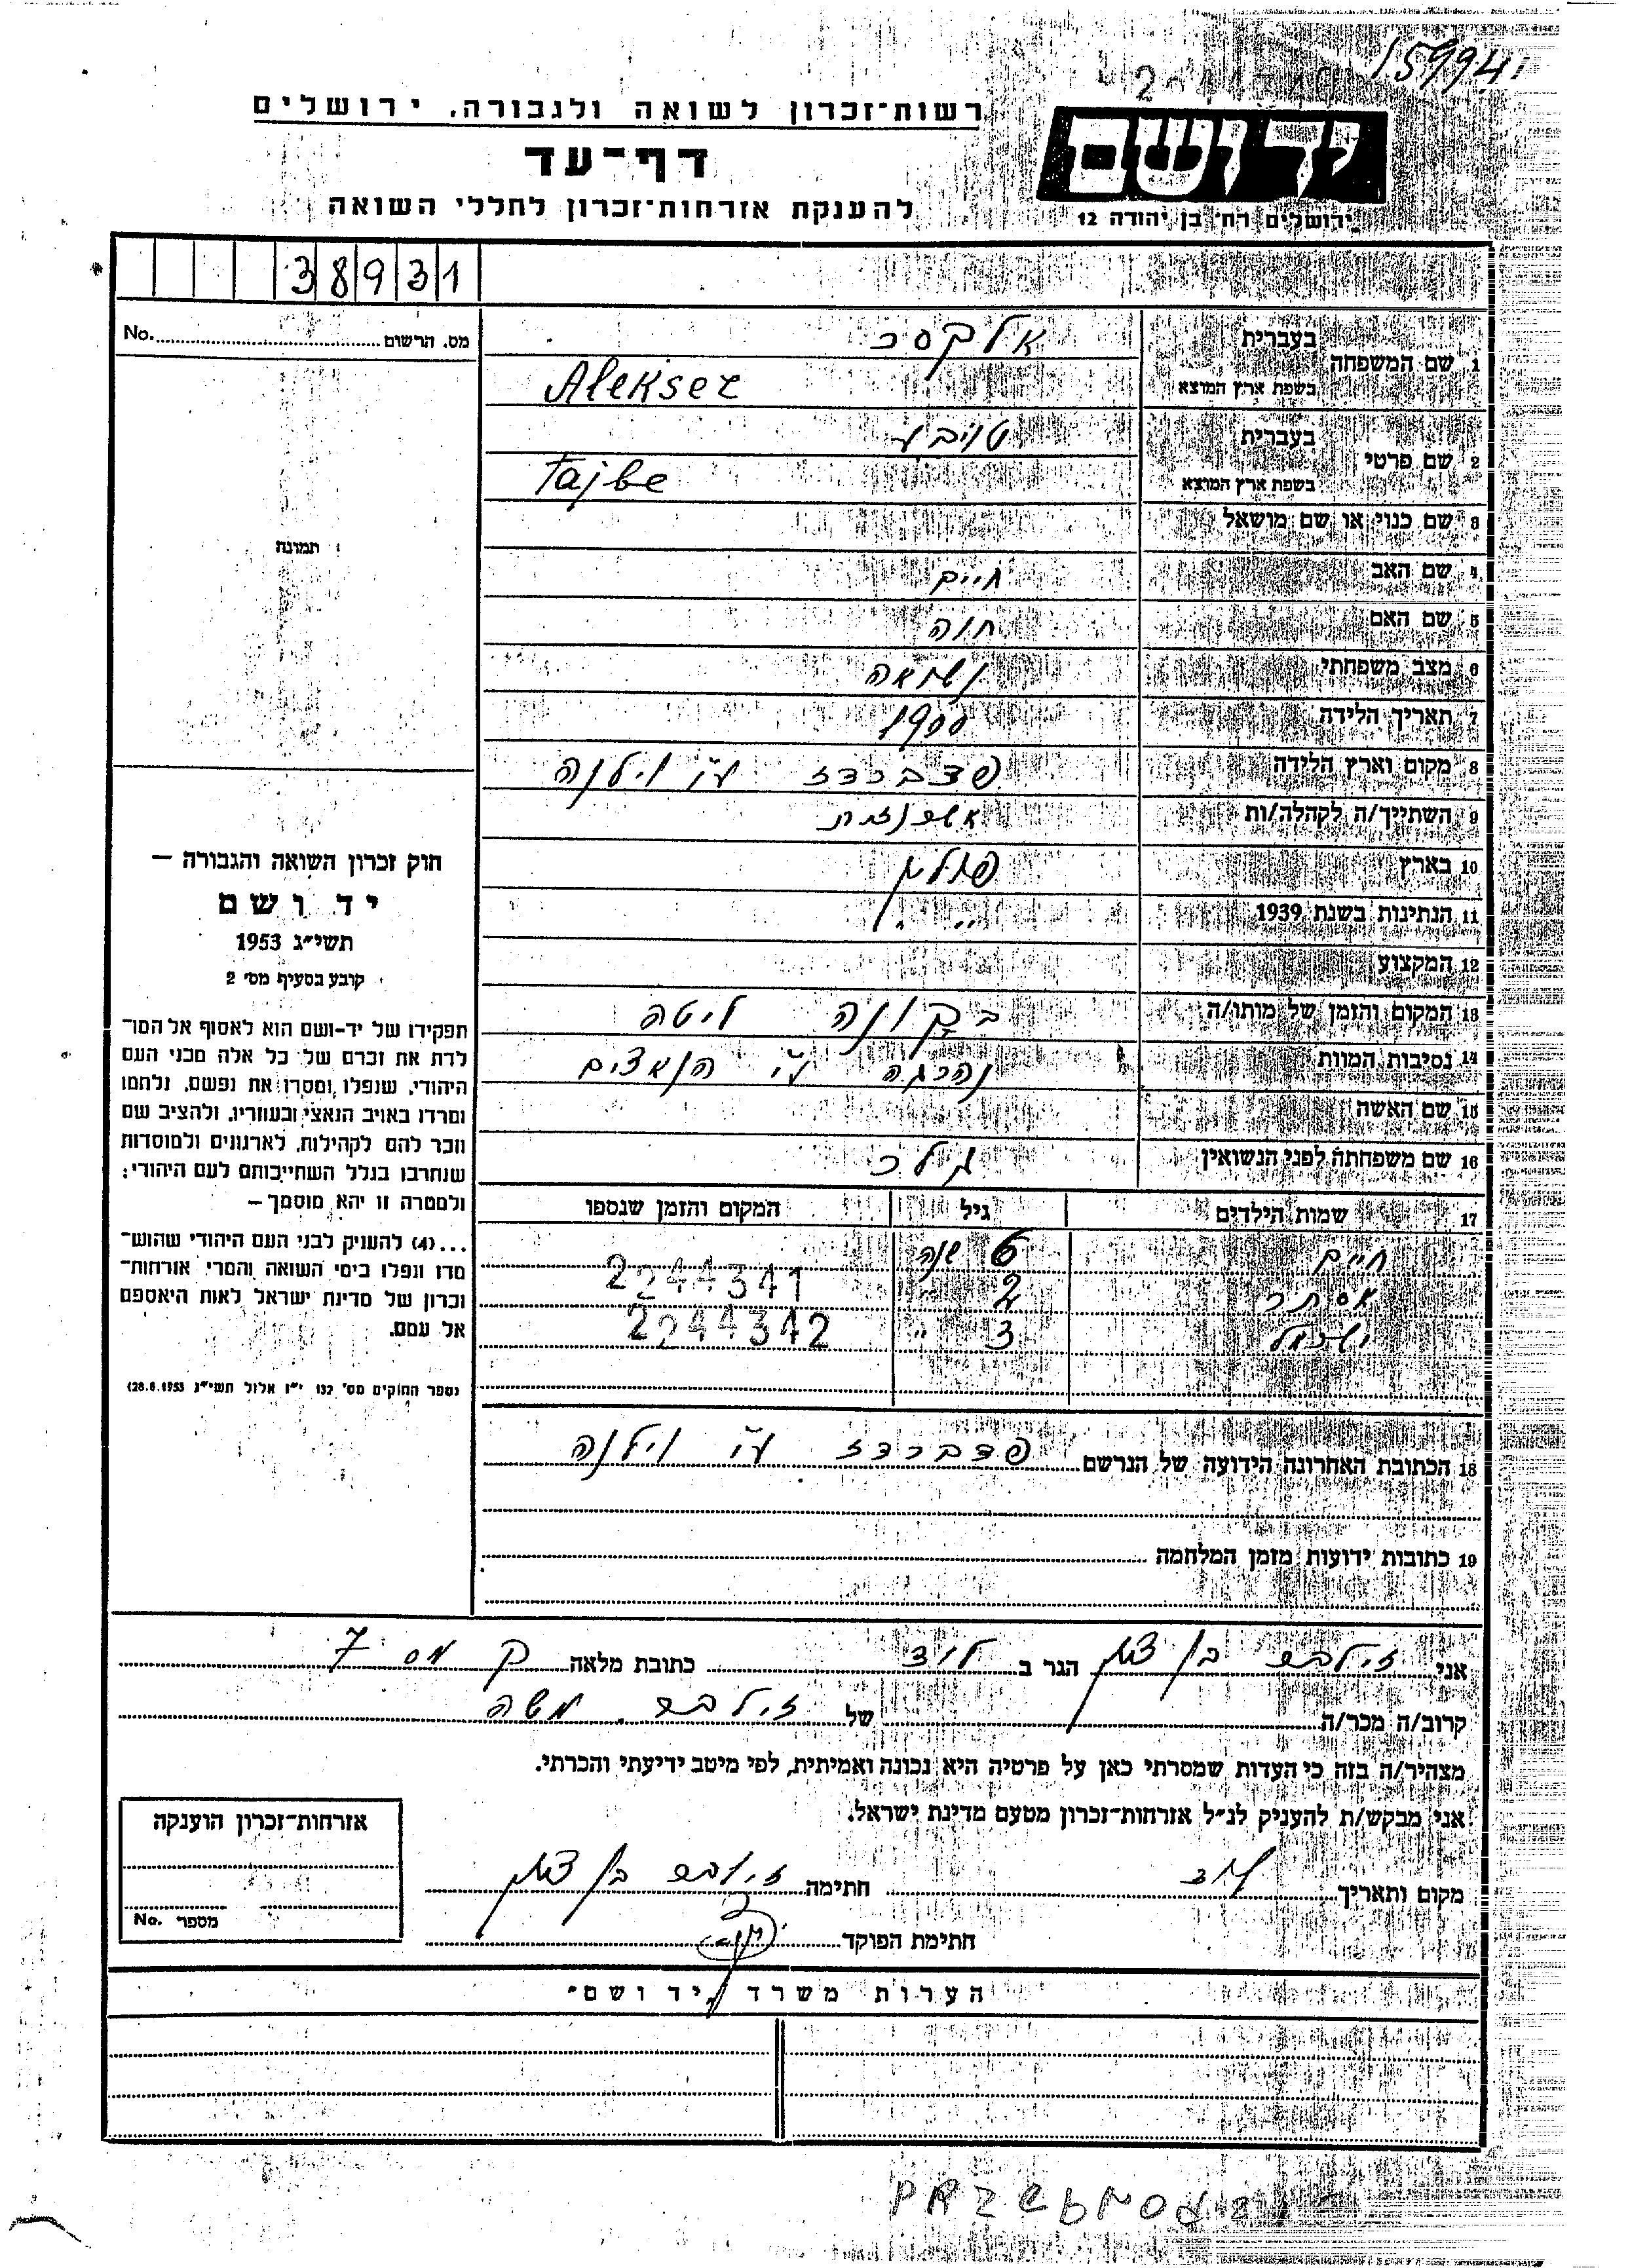 15994
רשות־זכרון לשואה ולגבורה, ירושלים
ידושם
דף־עד
להענקת אזרחות־זכרון לחללי השואה
ירושלים רח׳ בן יהודה 12
38931
No. מס. הרשום
תמונה
1 שם המשפחה
בעברית אלקסר
בשפת ארץ המוצא Alekser
2 שם פרטי
בעברית טויבע
בשפת ארץ המוצא Tajbe
3 שם כנוי או שם מושאל
4 שם האב חיים
5 שם האם חוה
6 מצב משפחתי נשואה
7 תאריך הלידה 1900
8 מקום וארץ הלידה פדברדז ע"י וילנה
9 השתייך/ה לקהלה/ות אשכנזית
10 בארץ פולין
11 הנתינות בשנת 1939 " "
12 המקצוע
13 המקום והזמן של מותו/ה ליטה
14 נסיבות המוות נהרגה ע"י הנאצים
15 שם האשה
16 שם משפחתה לפני הנשואין
17 שמות הילדים גיל המקום והזמן שנספו
חיים 6 שנה
אסתר 2244341
ישראל 3 " 2244342
18 הכתובת האחרונה הידועה של הנרשם פדברדז ע"י וילנה
19 כתובות ידועות מזמן המלחמה
חוק זכרון השואה והגבורה —
יד ושם
תשי״ג 1953
קובע בסעיף מס׳ 2
תפקידו של יד־ושם הוא לאסוף אל המו־
לדת את זכרם של כל אלה מבני העם
היהודי, שנפלו ומסרו את נפשם, נלחמו
ומרדו באויב הנאצי ובעוזריו, ולהציב שם
וזכר להם לקהילות, לארגונים ולמוסדות
שנחרבו בגלל השתייכותם לעם היהודי;
ולמטרה זו יהא מוסמך —
...(4) להעניק לבני העם היהודי שהוש־
מדו ונפלו בימי השואה והמרי אזרחות־
זכרון של מדינת ישראל לאות היאספם
אל עמם.
(ספר החוקים מס׳ 132 י״ז אלול תשי״ג 28.8.1953)
אני זילבר בן ציון הגר ב לוד כתובת מלאה ק 7
קרוב/ה מכר/ה של זילבר משה
מצהיר/ה בזה כי העדות שמסרתי כאן על פרטיה היא נכונה ואמיתית, לפי מיטב ידיעתי והכרתי.
אני מבקש/ת להעניק לנ״ל אזרחות־זכרון מטעם מדינת ישראל.
מקום ותאריך לוד חתימה זילבר בן ציון
חתימת הפוקד
אזרחות־זכרון הוענקה
No. מספר
הערות משרד „יד ושם״